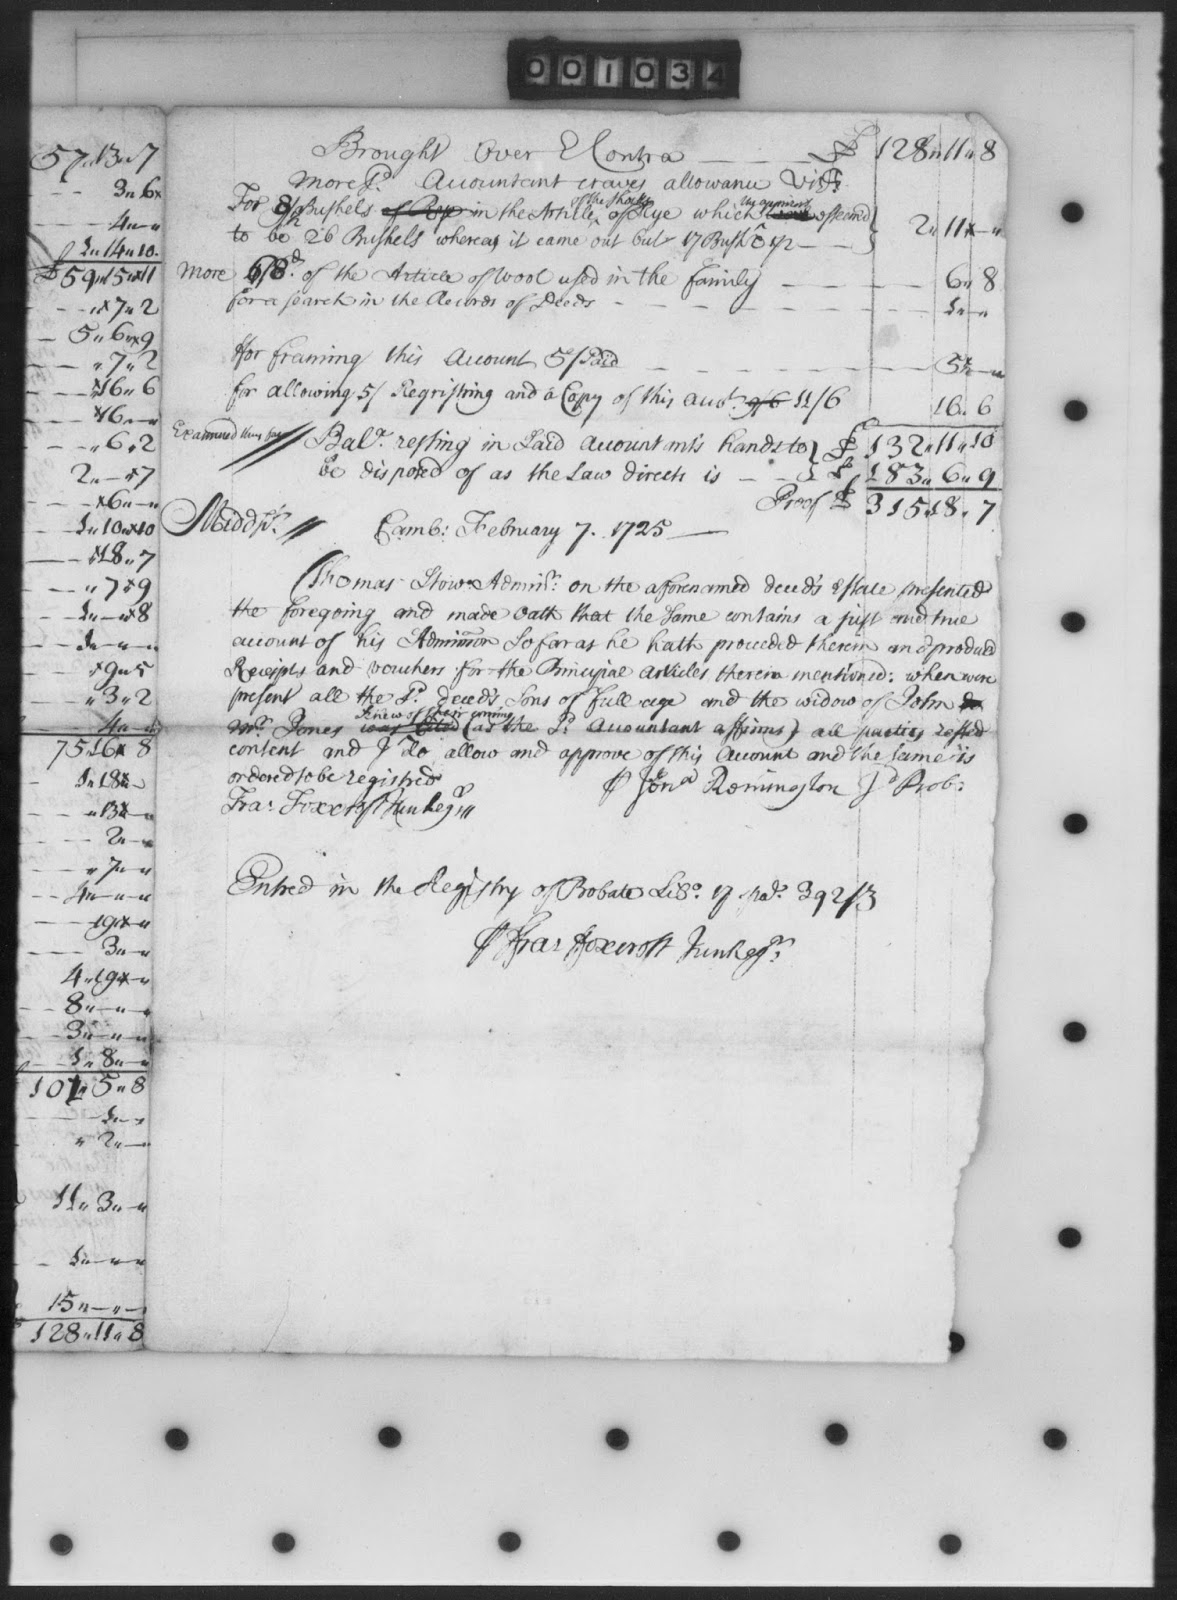 001034
57.13.7
3.6
4
1.14.10
£59.15.11
7.2
5.6.9
7.2
16.6
16
6.2
2.-.7
6
1.10.10
18.7
7.9
1.-.8
1
9.5
3.2
4
75.16.8
1.18
13
2
7
4
19
3
4.19
8
3
1.8
101.5.8
1
2
11.3
1
15
128.11.8
Brought Over Contra £ 128.11.8
more Sd. Accountant craves allowance Viz.
of the Stock
For 8½ Bushels in the Article of Rye which offered
to be 26 Bushels whereas it came out but 17 Bushs. ½ 2.11
more 6/8d. of the Article of wool used in the family 6.8
for a search in the Records of Deeds 1
for framing this Account 5/ Paid 5
for allowing 5/ Registring and a Copy of this acco. 9/6 11/6 16.6
Examined £132.11.10
Bala. resting in Said accountants hands to
be disposed of as the Law directs is £183.6.9
Proof £ 315.18.7
Middx. Camb: February 7. 1725
Thomas Stow Adminr. on the aforenamed deced's Estate presented
the foregoing and made oath that the Same contains a just and true
account of his Adminion So far as he hath proceeded therein and produced
Receipts and vouchers for the Principal articles therein mentioned: when were
present all the Sd. deced's Sons of full age and the widow of John
knew of their coming
Mr. Jones was Cited (as the Sd. Accountant affirms) all parties
consent and I do allow and approve of this Account and the Same is
ordered to be registred
P Jona. Remington Jd Prob:
Fra: Foxcroft Jun Regr
Entred in the Registry of Probate Libo. 17 pa. 392/3
P Fra: Foxcroft Jun Regr.